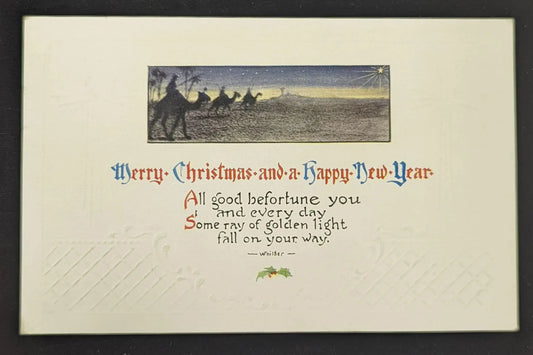 Merry·Christmas·and·a·Happy·New·Year·
All good befortune you
and every day
Some ray of golden light
fall on your way.